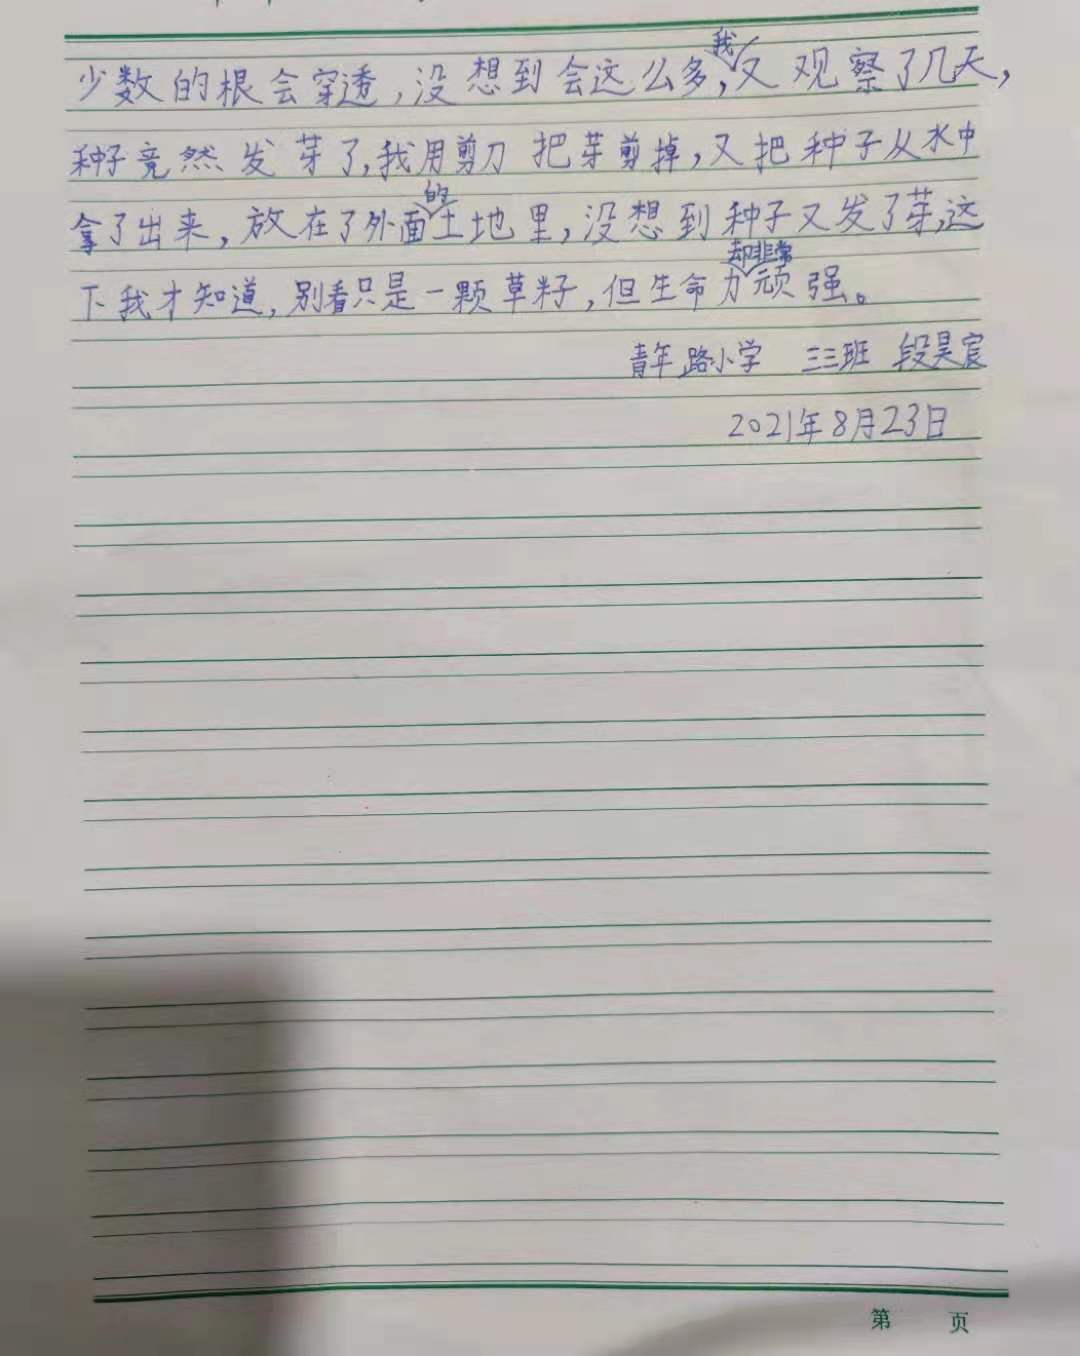 少数的根会穿透,没想到会这么多,我又观察了几天,
种子竟然发芽了,我用剪刀把芽剪掉,又把种子从水中
拿了出来,放在了外面的土地里,没想到种子又发了芽,这
下我才知道,别看只是一颗草籽,但生命力却非常顽强。
青年路小学 三三班 段昊宸
2021年8月23日
第 页